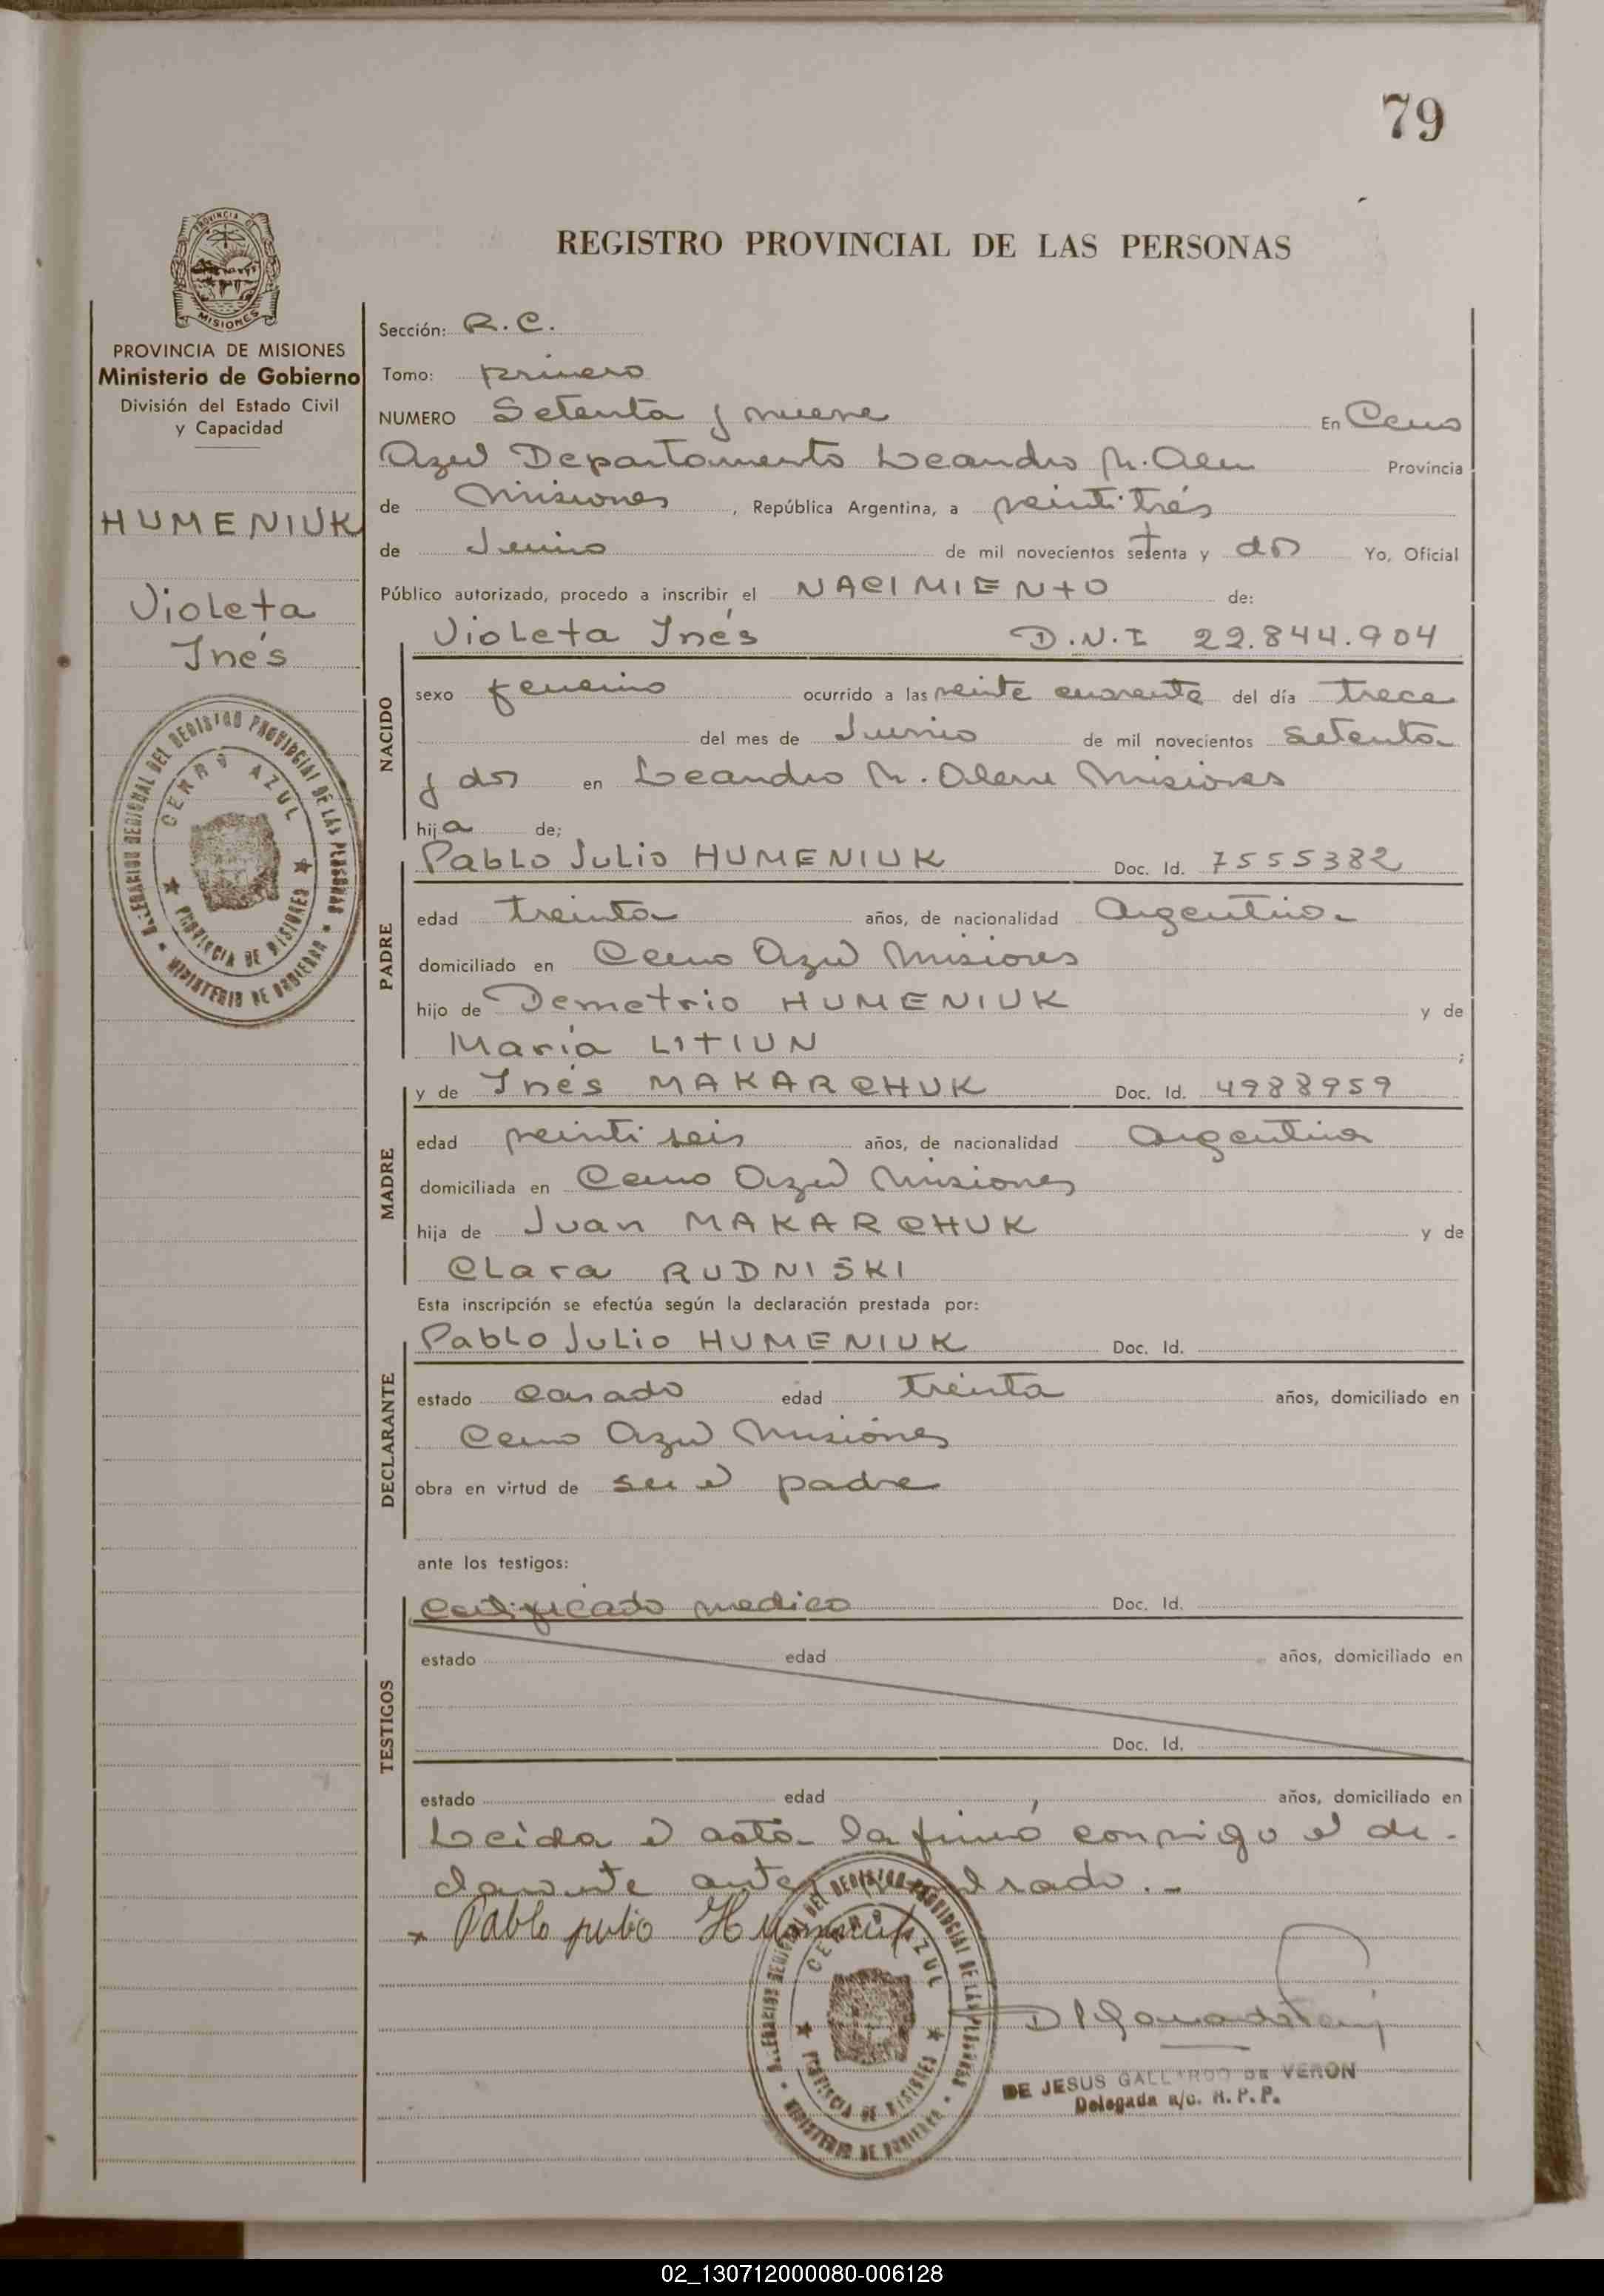 79
REGISTRO PROVINCIAL DE LAS PERSONAS
PROVINCIA DE
MISIONES
PROVINCIA DE MISIONES
Ministerio de Gobierno
División del Estado Civil
y Capacidad
HUMENIUK
Violeta
Inés
CERRO AZUL
PROVINCIA DE MISIONES
MINISTERIO DE GOBIERNO
Sección: R.C.
Tomo: primero
NUMERO Setenta y nueve En Cerro
Azul Departamento Leandro N. Alem Provincia
de Misiones, República Argentina, a veintitrés
de Junio de mil novecientos setenta y dos Yo, Oficial
Público autorizado, procedo a inscribir el NACIMIENTO de:
NACIDO
Violeta Inés D.N.I 22.844.904
sexo femenino ocurrido a las veinte cuarenta del día trece
del mes de Junio de mil novecientos setenta
y dos en Leandro N. Alem Misiones
hija de;
PADRE
Pablo Julio HUMENIUK Doc. Id. 7555382
edad treinta años, de nacionalidad Argentina
domiciliado en Cerro Azul Misiones
hijo de Demetrio HUMENIUK y de
María LITIUN ;
MADRE
y de Inés MAKARCHUK Doc. Id. 4988959
edad veintiseis años, de nacionalidad Argentina
domiciliada en Cerro Azul Misiones
hija de Juan MAKARCHUK y de
Clara RUDNISKI
Esta inscripción se efectúa según la declaración prestada por:
DECLARANTE
Pablo Julio HUMENIUK Doc. Id.
estado casado edad treinta años, domiciliado en
Cerro Azul Misiones
obra en virtud de ser el padre
ante los testigos:
TESTIGOS
Certificado medico Doc. Id.
estado edad años, domiciliado en
Doc. Id.
estado edad años, domiciliado en
Leida el acta la firmó conmigo el de-
clarante ante
* Pablo julio Humeniuk
CERRO AZUL
PROVINCIA DE MISIONES
MINISTERIO DE GOBIERNO
DE JESUS GALLARDO DE VERON
Delegada a/c. R.P.P.
02_130712000080-006128